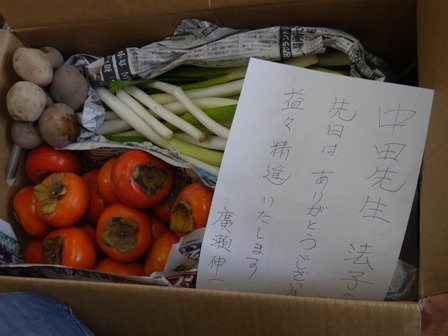 中田先生 法子
先日は ありがとうござい
益々精進いたします
廣瀬伸一